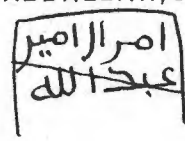 امر الامير
عبد الله